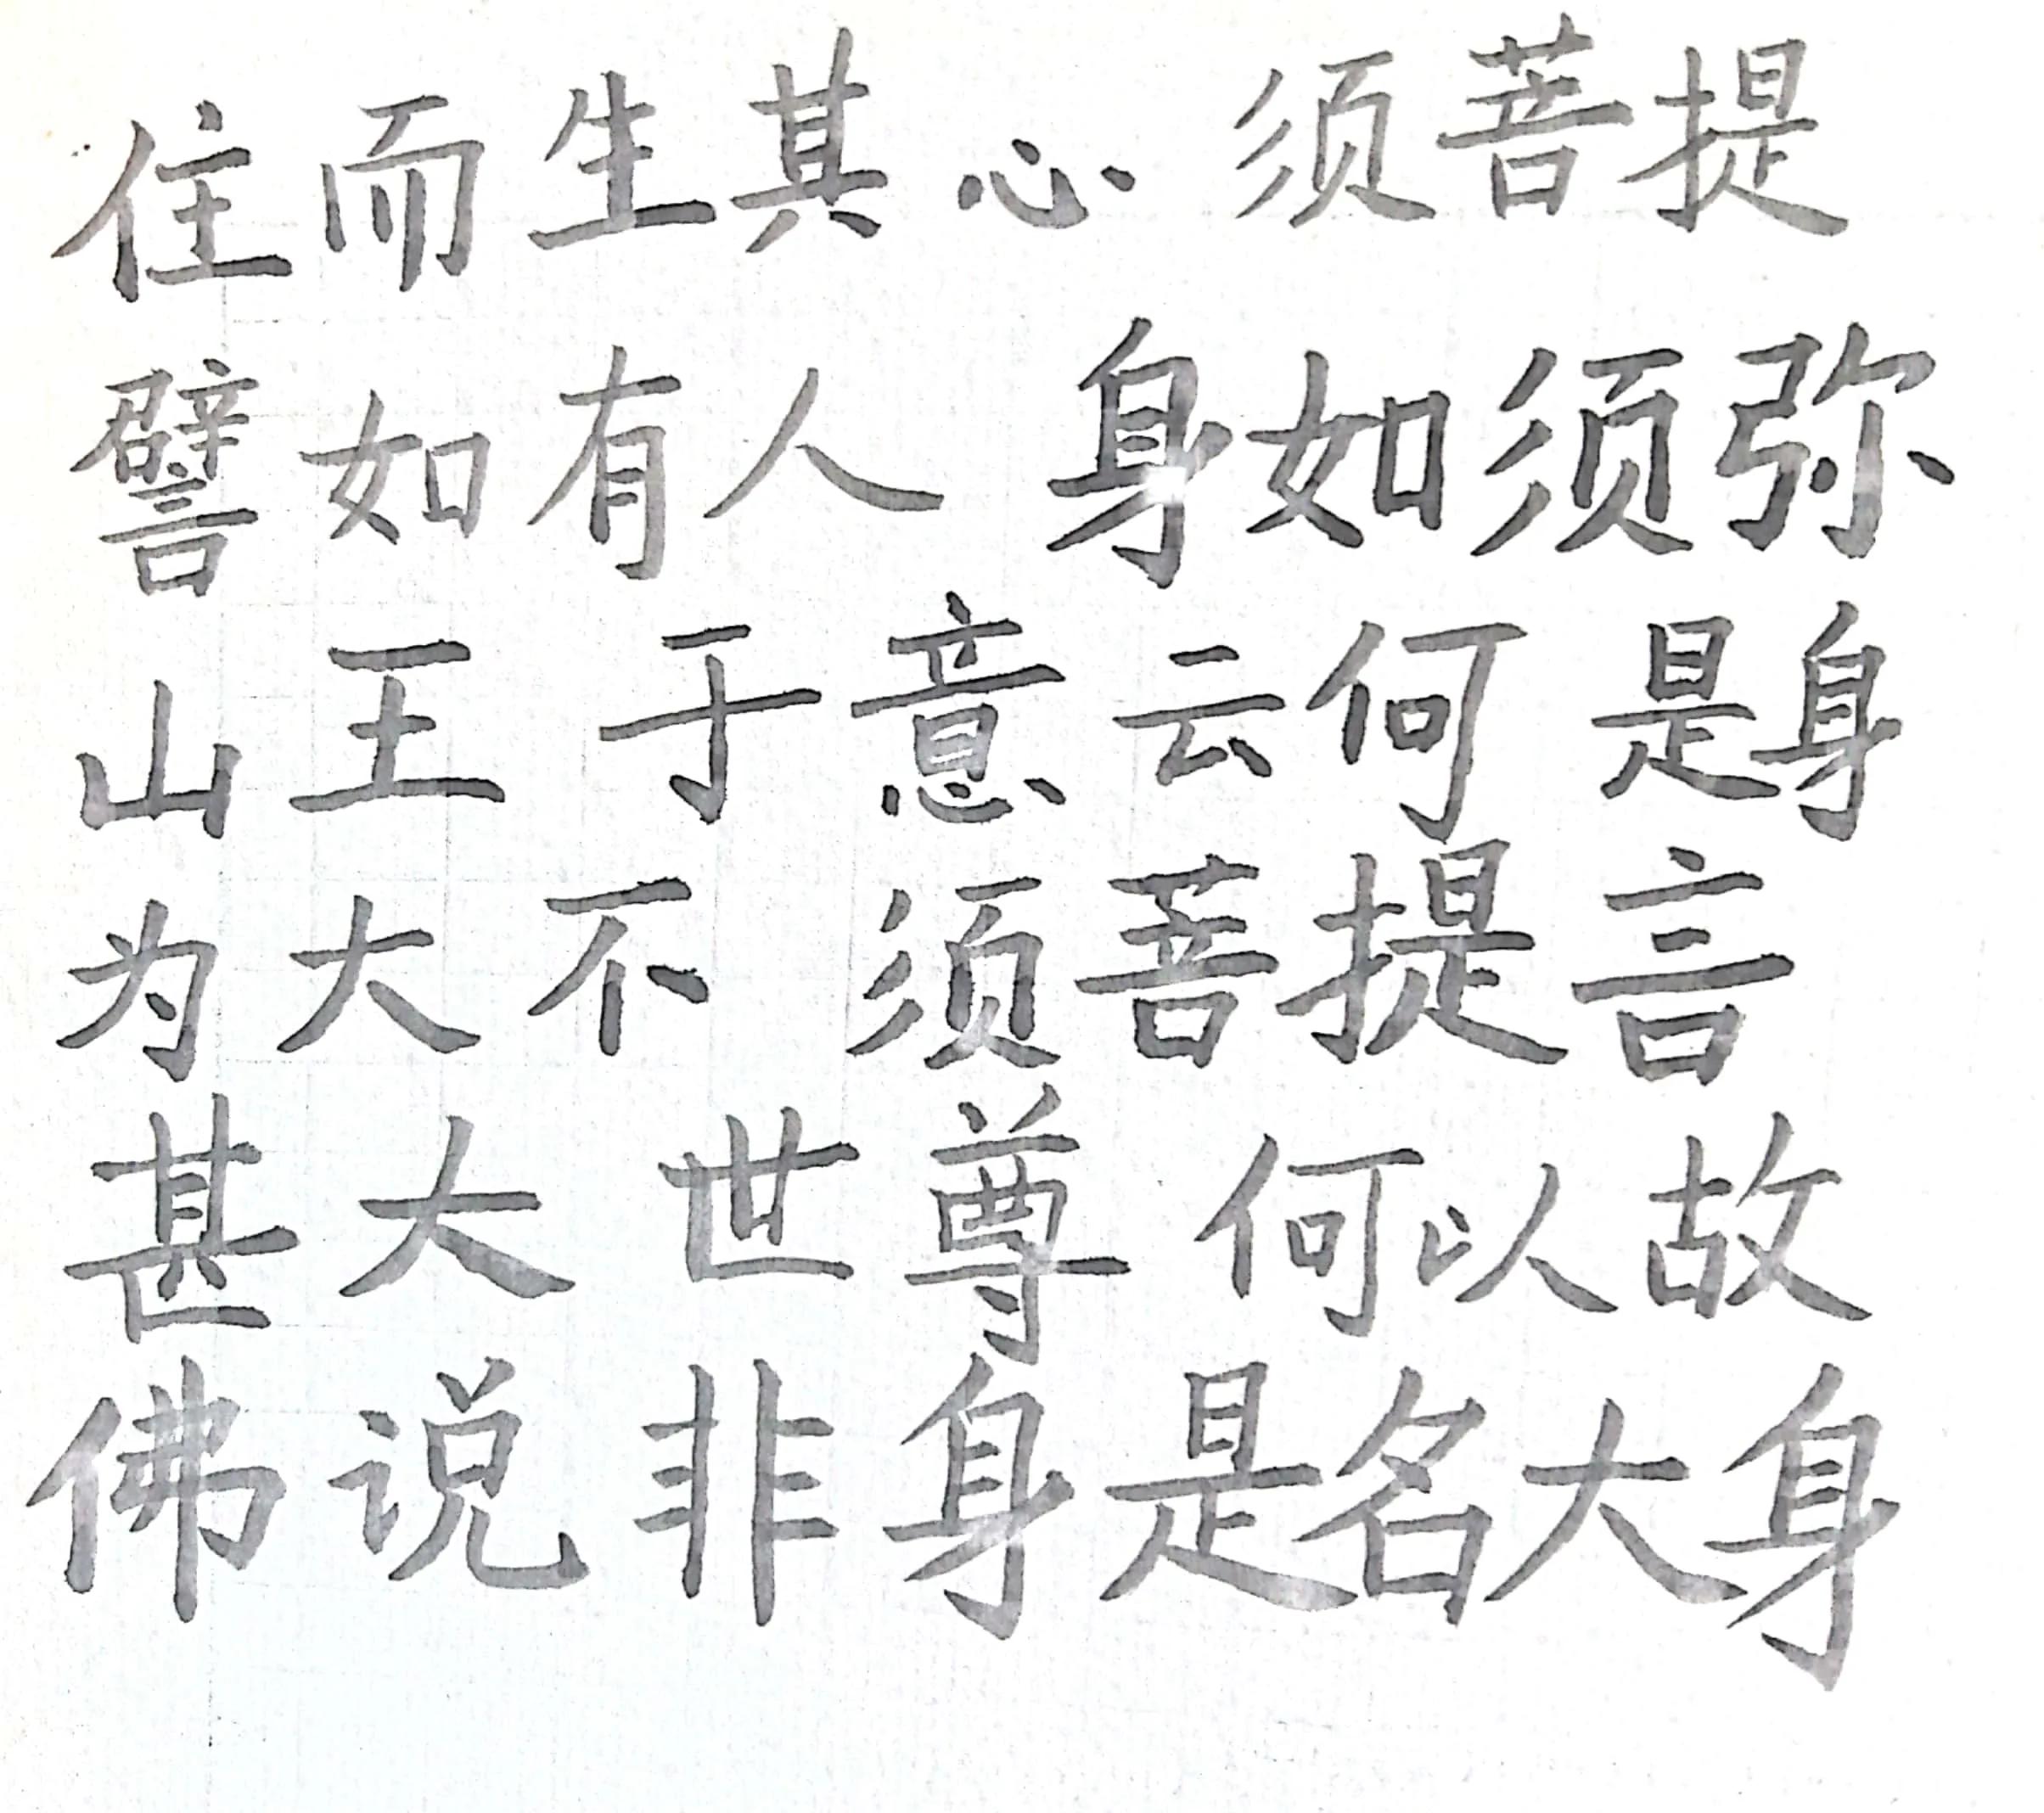 住而生其心 须菩提
譬如有人 身如须弥
山王于意云何 是身
为大不须菩提言
甚大 世尊 何以故
佛说非身是名大身